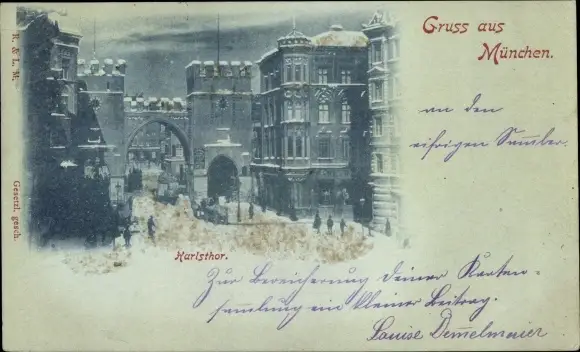 Gruss aus
München.
an den
eifrigen Sammler.
R. & L. M.
Gesetzl. gesch.
Karlsthor.
Zur Bereicherung deiner Karten-
sammlung ein kleiner Beitrag.
Louise Demmelmeier